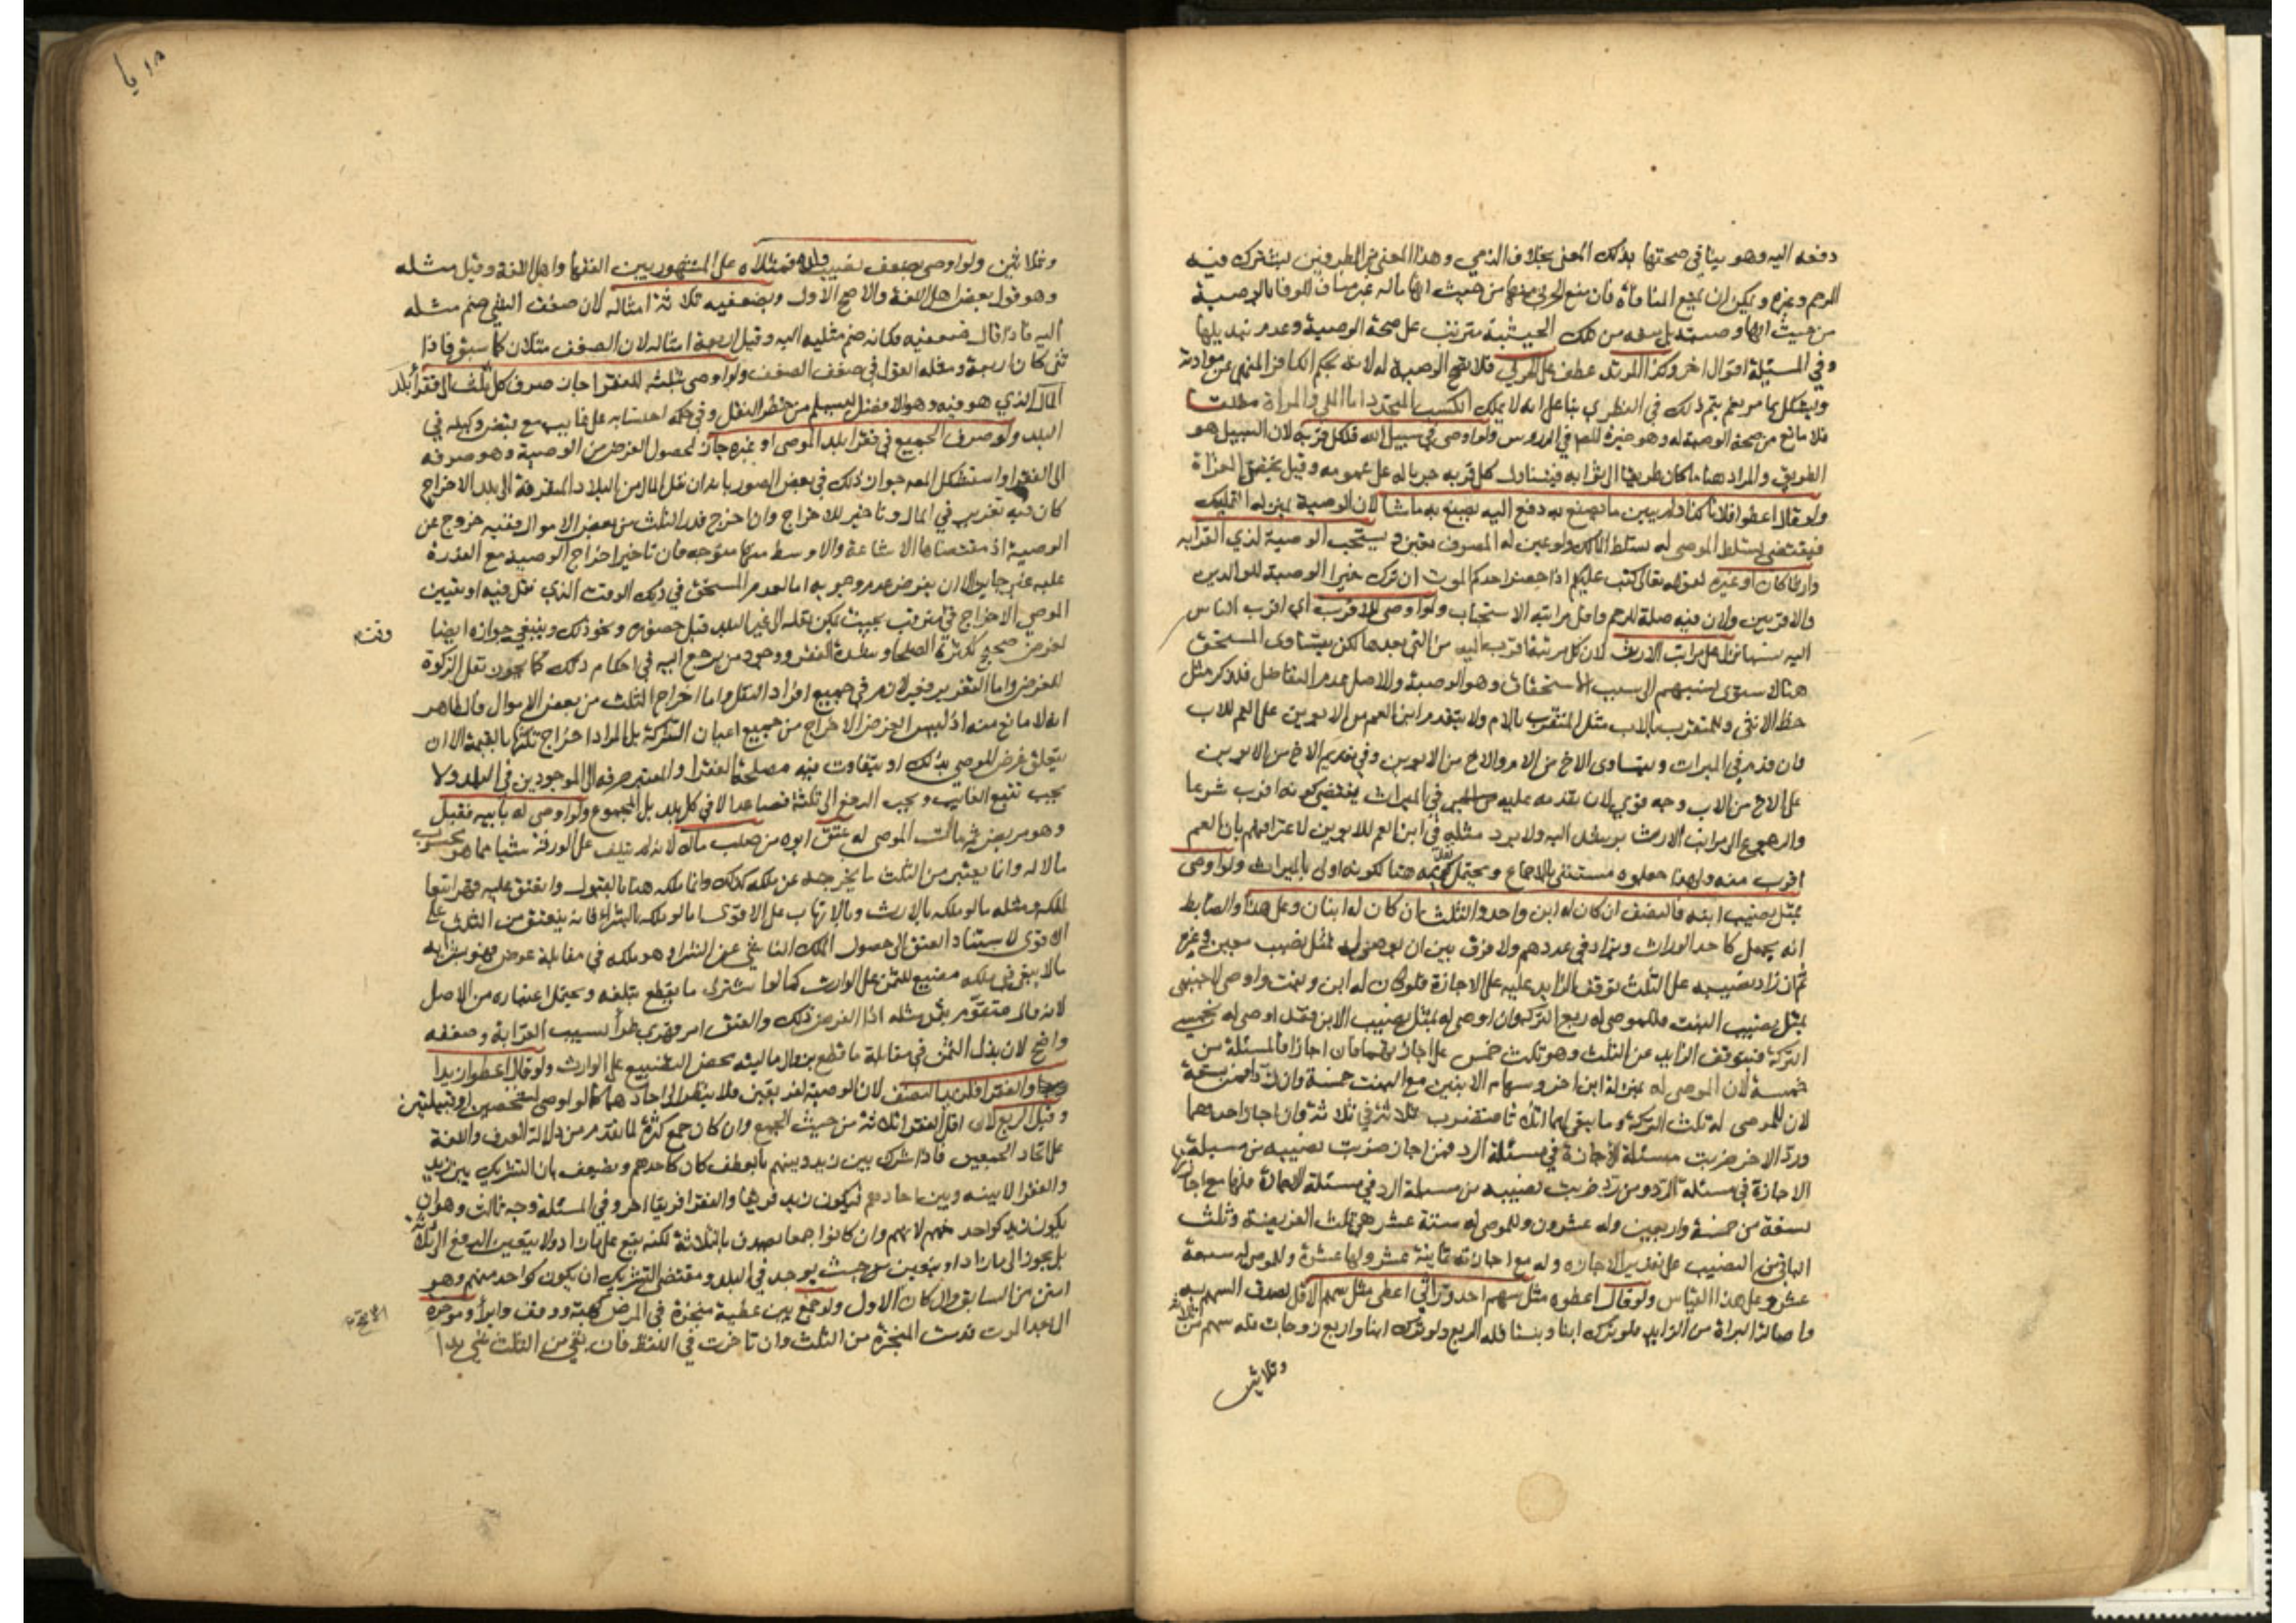 دفعه اليه وهو ينافي صحتها بذلك المعنى بخلاف الذمي وهذا المعنى من الطرفين يشترك فيه
الرحم وغيره ويمكن ان يمنع المنافاة فان منع الحربي منها من حيث انها ماله غير مناف للوفا بالوصية
من حيث انها وصية بل منعه من تلك الحيثية مترتب على صحة الوصية وعدم تبديلها
وفي المسئلة اقوال اخر وكذا المرتد عطف على الحربي فلا تصح الوصية له لانه بحكم الكافر المنهي عن موادته
ويشكل بما مر نعم يتم ذلك في الفطري بنا على انه لا يملك الكسب المتجدد اما الملي والمراة مطلقا
فلا مانع من صحة الوصية له وهو خيرة المص في الدروس ولو اوصى في سبيل الله فلكل قربة لان السبيل هو
الطريق والمراد هنا ما كان طريقا الى ثوابه فيتناول كل قربة جريا له على عمومه وقيل يختص الغزاة
ولو قال اعطوا فلانا كذا ولم يبين ما يصنع به دفع اليه يصنع به ما شا لان الوصية بمنزلة التمليك
فيقتضي تسلط الموصى له تسلط المالك ولو عين له المصرف تعين ويستحب الوصية لذي القرابة
وارثا كان او غيره لقوله تعالى كتب عليكم اذا حضر احدكم الموت ان ترك خيرا الوصية للوالدين
والاقربين ولان فيه صلة للرحم واقل مراتبه الاستحباب ولو اوصى للاقرب اي اقرب الناس
اليه نسبا نزل على مراتب الارث لان كل مرتبة اقرب اليه من التي بعدها لكن يتساوى المستحق
هنا لاستوى نسبتهم الى سبب الاستحقاق وهو الوصية والاصل عدم التفاضل فللذكر مثل
حظ الانثى وللمتقرب بالاب مثل المتقرب بالام ولا يتقدم ابن العم من الابوين على العم للاب
وان قدم في الميراث ويتساوى الاخ من الام والاخ من الابوين وفي تقديم الاخ من الابوين
على الاخ من الاب وجه قوي لان تقدمه عليه في الميراث يقتضي كونه اقرب شرعا
والرجوع الى مراتب الارث يرشد اليه ولا يرد مثله في ابن العم للابوين لاعترافهم بان العم
اقرب منه ولهذا جعلوه مستثنى بالاجماع ويحتمل تقديمه هنا لكونه اولى بالميراث ولو اوصى
بمثل نصيب ابنه فالنصف ان كان له ابن واحد والثلث ان كان له ابنان وعلى هذا والضابط
انه يجعل كاحد الوراث ويزاد في عددهم ولا فرق بين ان يوصي له بمثل نصيب معين وغيره
ثم ان زاد نصيبه على الثلث توقف الزايد عليه على الاجازة فلو كان له ابن وبنت واوصى لاجنبي
بمثل نصيب البنت فللموصى له ربع التركة وان اوصى له بمثل نصيب الابن فقد اوصى له بخمسي
التركة فيتوقف الزايد عن الثلث وهو ثلث خمس على اجازتهما فان اجازا فالمسئلة من
خمسة لان الموصى له بمنزلة ابن اخر وسهام الابنين مع البنت خمسة وان ردا فمن تسعة
لان للموصى له ثلث التركة وما بقي لهما اثلاثا فتضرب ثلاثة في ثلاثة وان اجاز احدهما
ورد الاخر ضربت مسئلة الاجازة في مسئلة الرد فمن اجاز ضربت نصيبه من مسئلة
الاجازة في مسئلة الرد ومن رد ضربت نصيبه من مسئلة الرد في مسئلة الاجازة فلها مع اجازتها
تسعة من خمسة واربعين وله عشرون وللموصى له ستة عشر هي ثلث الفريضة وثلث
الباقي من النصيب على تقدير الاجازة وله مع اجازته ثمانية عشر ولها عشرة وللموصى له سبعة
عشر وعلى هذا القياس ولو قال اعطوه مثل سهم احد وراثي اعطى مثل سهم الاقل لصدق السهم به
واصالة البراة من الزايد فلو ترك ابنا وبنتا فله الربع ولو ترك ابنا واربع زوجات فله سهم من ثلاثة
وثلاثين
وثلاثين ولو اوصى بضعف نصيب ولده فمثلاه على المشهور بين الفقها واهل اللغة وقيل مثله
وهو قول بعض اهل اللغة والاصح الاول وبضعفيه ثلاثة امثاله لان ضعف الشي ضم مثله
اليه فاذا قال ضعفيه فكانه ضم مثليه اليه وقيل اربعة امثاله لان الضعف مثلان كما سبق فاذا
ثنى كان اربعة ومثله القول في ضعف الضعف ولو اوصى بثلثه للفقرا جاز صرف كل ثلث الى فقرا بلد
المال الذي هو فيه وهو الافضل ليسلم من خطر النقل وفي حكمه احتسابه على غايب مع قبض وكيله في
البلد ولو صرف الجميع في فقرا بلد الموصي او غيره جاز لحصول الغرض من الوصية وهو صرفه
الى الفقرا واستشكل المص جواز ذلك في بعض الصور بانه ان نقل المال من البلاد المتفرقة الى بلد الاخراج
كان فيه تغرير في المال وتاخير للاخراج وان اخرج قدر الثلث من بعض الاموال ففيه خروج عن
الوصية اذ مقتضاها الاشاعة والاوسط منها متوجه فان تاخير اخراج الوصية مع القدرة
عليه غير جايز الا ان يفرض عدم وجوبه اما لعدم المستحق في ذلك الوقت الذي نقل فيه او تعيين
الموصي الاخراج في وقت مترقب بحيث يمكن نقله الى غير البلد قبل حضوره ونحو ذلك وينبغي جوازه ايضا
لغرض صحيح ككثرة الصلحا وشدة الفقر ووجود من يرجع اليه في احكام ذلك كما يجوز نقل الزكوة
للغرض واما التغرير فغير لازم في جميع افراد النقل واما اخراج الثلث من بعض الاموال فالظاهر
انه لا مانع منه اذ ليس الغرض الاخراج من جميع اعيان التركة بل المراد اخراج ثلثها بالقيمة الا ان
يتعلق غرض للموصي بذلك او يتفاوت فيه مصلحة الفقرا والمعتبر صرفه الى الموجودين في البلد ولا
يجب تتبع الغايب ويجب الدفع الى ثلثة فصاعدا لا في كل بلد بل المجموع ولو اوصى له بابيه فقبل
وهو مريض ثم مات الموصى له عتق ابوه من صلب ماله لانه لم يتلف على الورثة شيا مما هو محسوب
مالا له وانما يعتبر من الثلث ما يخرجه عن ملكه كذلك وانما ملكه هنا بالقبول وانعتق عليه قهرا تبعا
لملكه ومثله ما لو ملكه بالارث وبالاتهاب على الاقوى اما لو ملكه بالشرا فانه ينعتق من الثلث على
الاقوى لاستناد العتق الى حصول الملك الناشي عن الشرا وهو ملكه في مقابلة عوض فهو بشرايه
ما لا يبقى في ملكه مضيع للثمن على الوارث كما لو اشترى ما يقطع بتلفه ويحتمل اعتباره من الاصل
لانه مال متقوم بثمن مثله اذ الفرض ذلك والعتق امر قهري طرا بسبب القرابة وضعفه
واضح لان بذل الثمن في مقابلة ما قطع بزوال ماليته محض التضييع على الوارث ولو قال اعطوا زيدا
والفقرا فلزيد النصف لان الوصية لفريقين فلا ينظر الى احادهما كما لو اوصى لشخصين او قبيلتين
وقيل الربع لان اقل الفقرا ثلاثة من حيث الجمع وان كان جمع كثرة لما تقدم من دلالة العرف واللغة
على اتحاد الجمعين فاذا شرك بين زيد وبينهم بالعطف كان كاحدهم ويضعف بان التشريك بين زيد
والفقرا لا بينه وبين احادهم فيكون زيد فريقا والفقرا فريقا اخر وفي المسئلة وجه ثالث وهو ان
يكون زيد كواحد منهم لانهم وان كانوا جمعا يصدق بالثلاثة لكنه يقع على ما زاد ولا يتعين الدفع الى ثلاثة
بل يجوز الى ما زاد او يتعين من حيث يوجد في البلد ومقتضى التشريك ان يكون كواحد منهم وهو
امتن من السابق وان كان الاول ولو جمع بين عطية منجزة في المرض كهبة ووقف وابرا وموخرة
الى بعد الموت قدمت المنجزة من الثلث وان تاخرت في اللفظ فان بقي من الثلث شي بدا